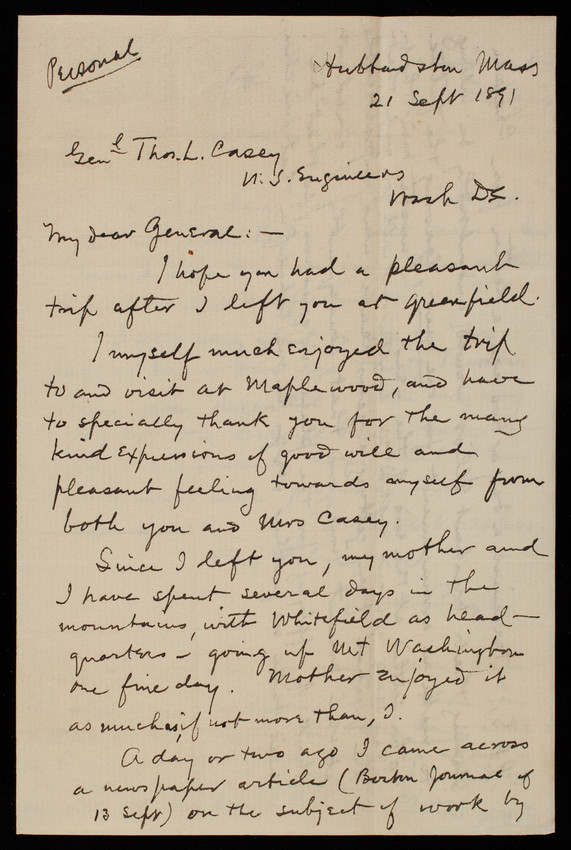 Personal
Hubbardston Mass
21 Sept 1891
Genl Thos. L. Casey
U. S. Engineers
Wash D.C.
My dear General: —
I hope you had a pleasant
trip after I left you at Greenfield.
I myself much enjoyed the trip
to and visit at Maplewood, and have
to specially thank you for the many
kind expressions of good will and
pleasant feeling towards myself from
both you and Mrs Casey.
Since I left you, my mother and
I have spent several days in the
mountains, with Whitefield as head-
quarters - going up Mt Washington
one fine day. Mother enjoyed it
as much as, if not more than, I.
A day or two ago I came across
a newspaper article (Boston Journal of
13 Sept) on the subject of work by